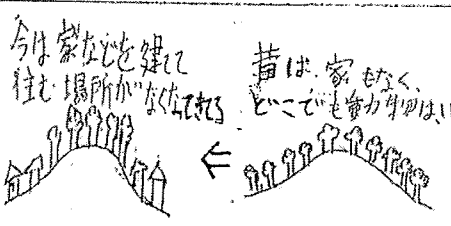 今は家などを建てて
住む場所がなくなってきてる
昔は、家もなく、
どこでも動